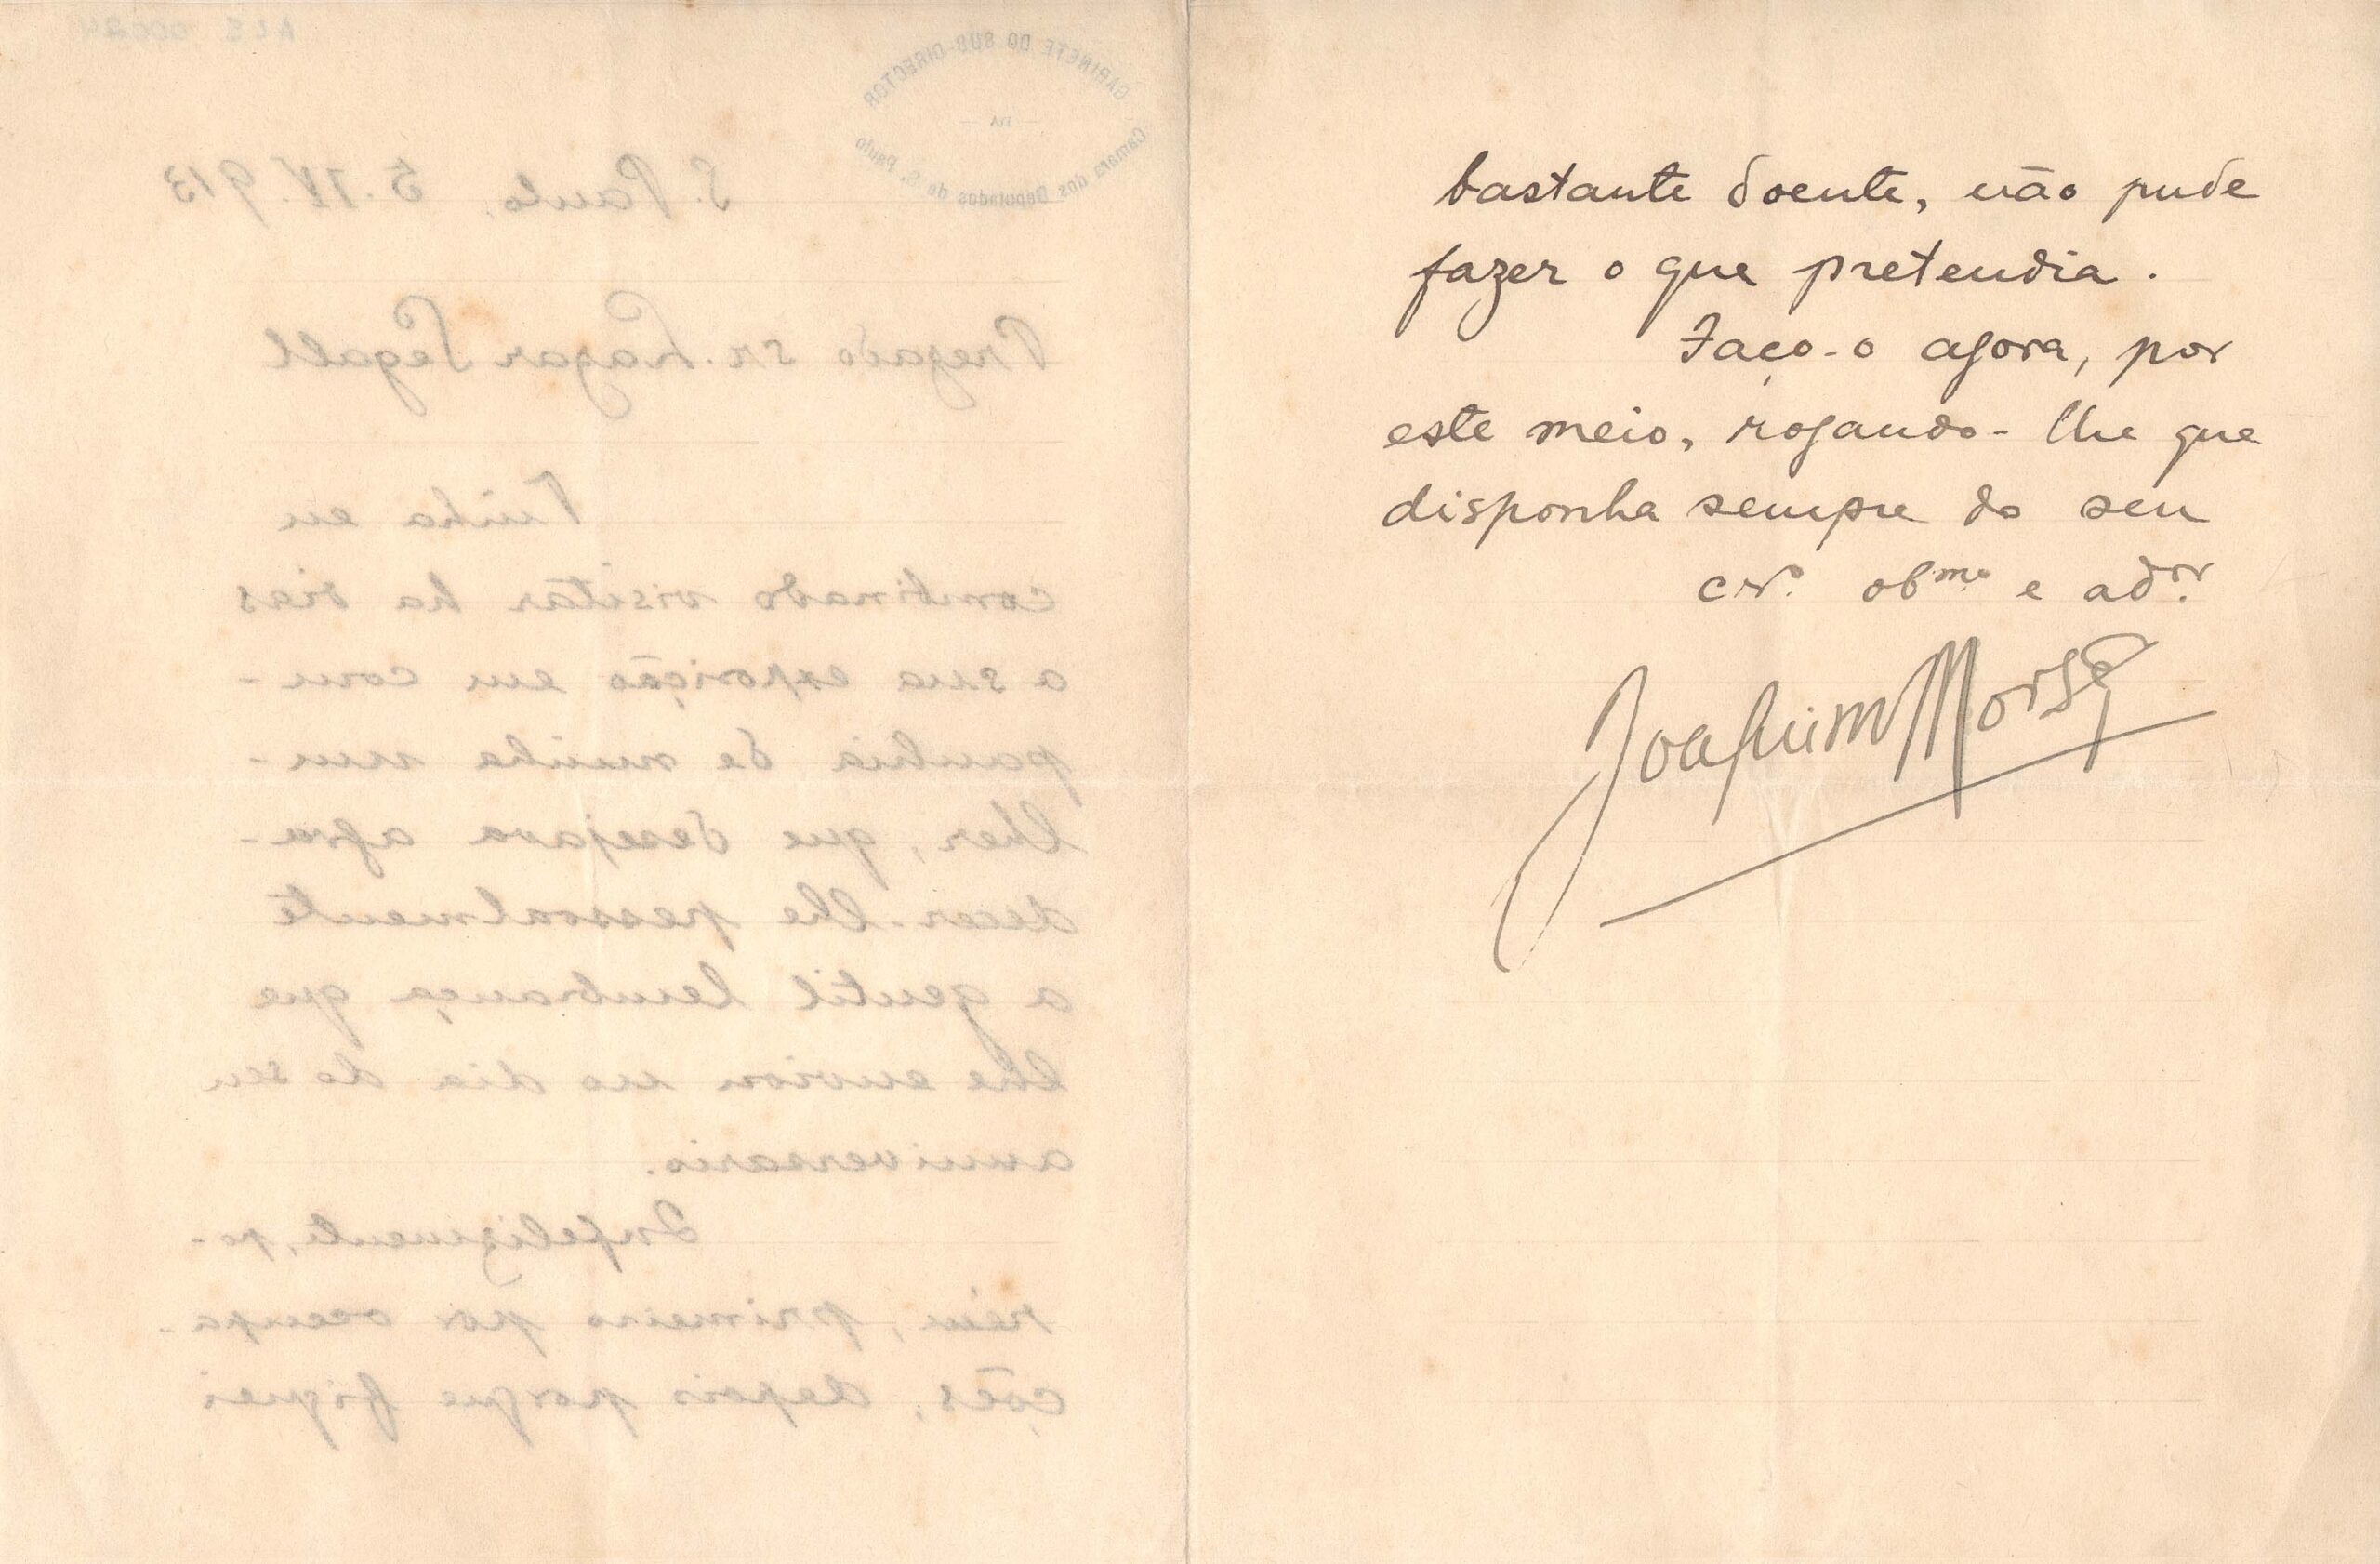 GABINETE DO SUB DIRECTOR
— DA —
Camara dos Deputados de S. Paulo
S. Paulo, 5. IV. 913
Prezado sr. Lazar Segall
Tinha eu
combinado visitar ha dias
a sua exposição em com-
panhia de minha mu-
lher, que desejava agra-
decer-lhe pessoalmente
a gentil lembrança que
lhe enviou no dia do seu
anniversario.
Infelizmente, po-
rém, primeiro por occupa-
ções, depois porque fiquei
bastante doente, não pude
fazer o que pretendia.
Faço-o agora, por
este meio, rogando-lhe que
disponha sempre do seu
cr.º ob.mo e ad.or
Joaquim Morse